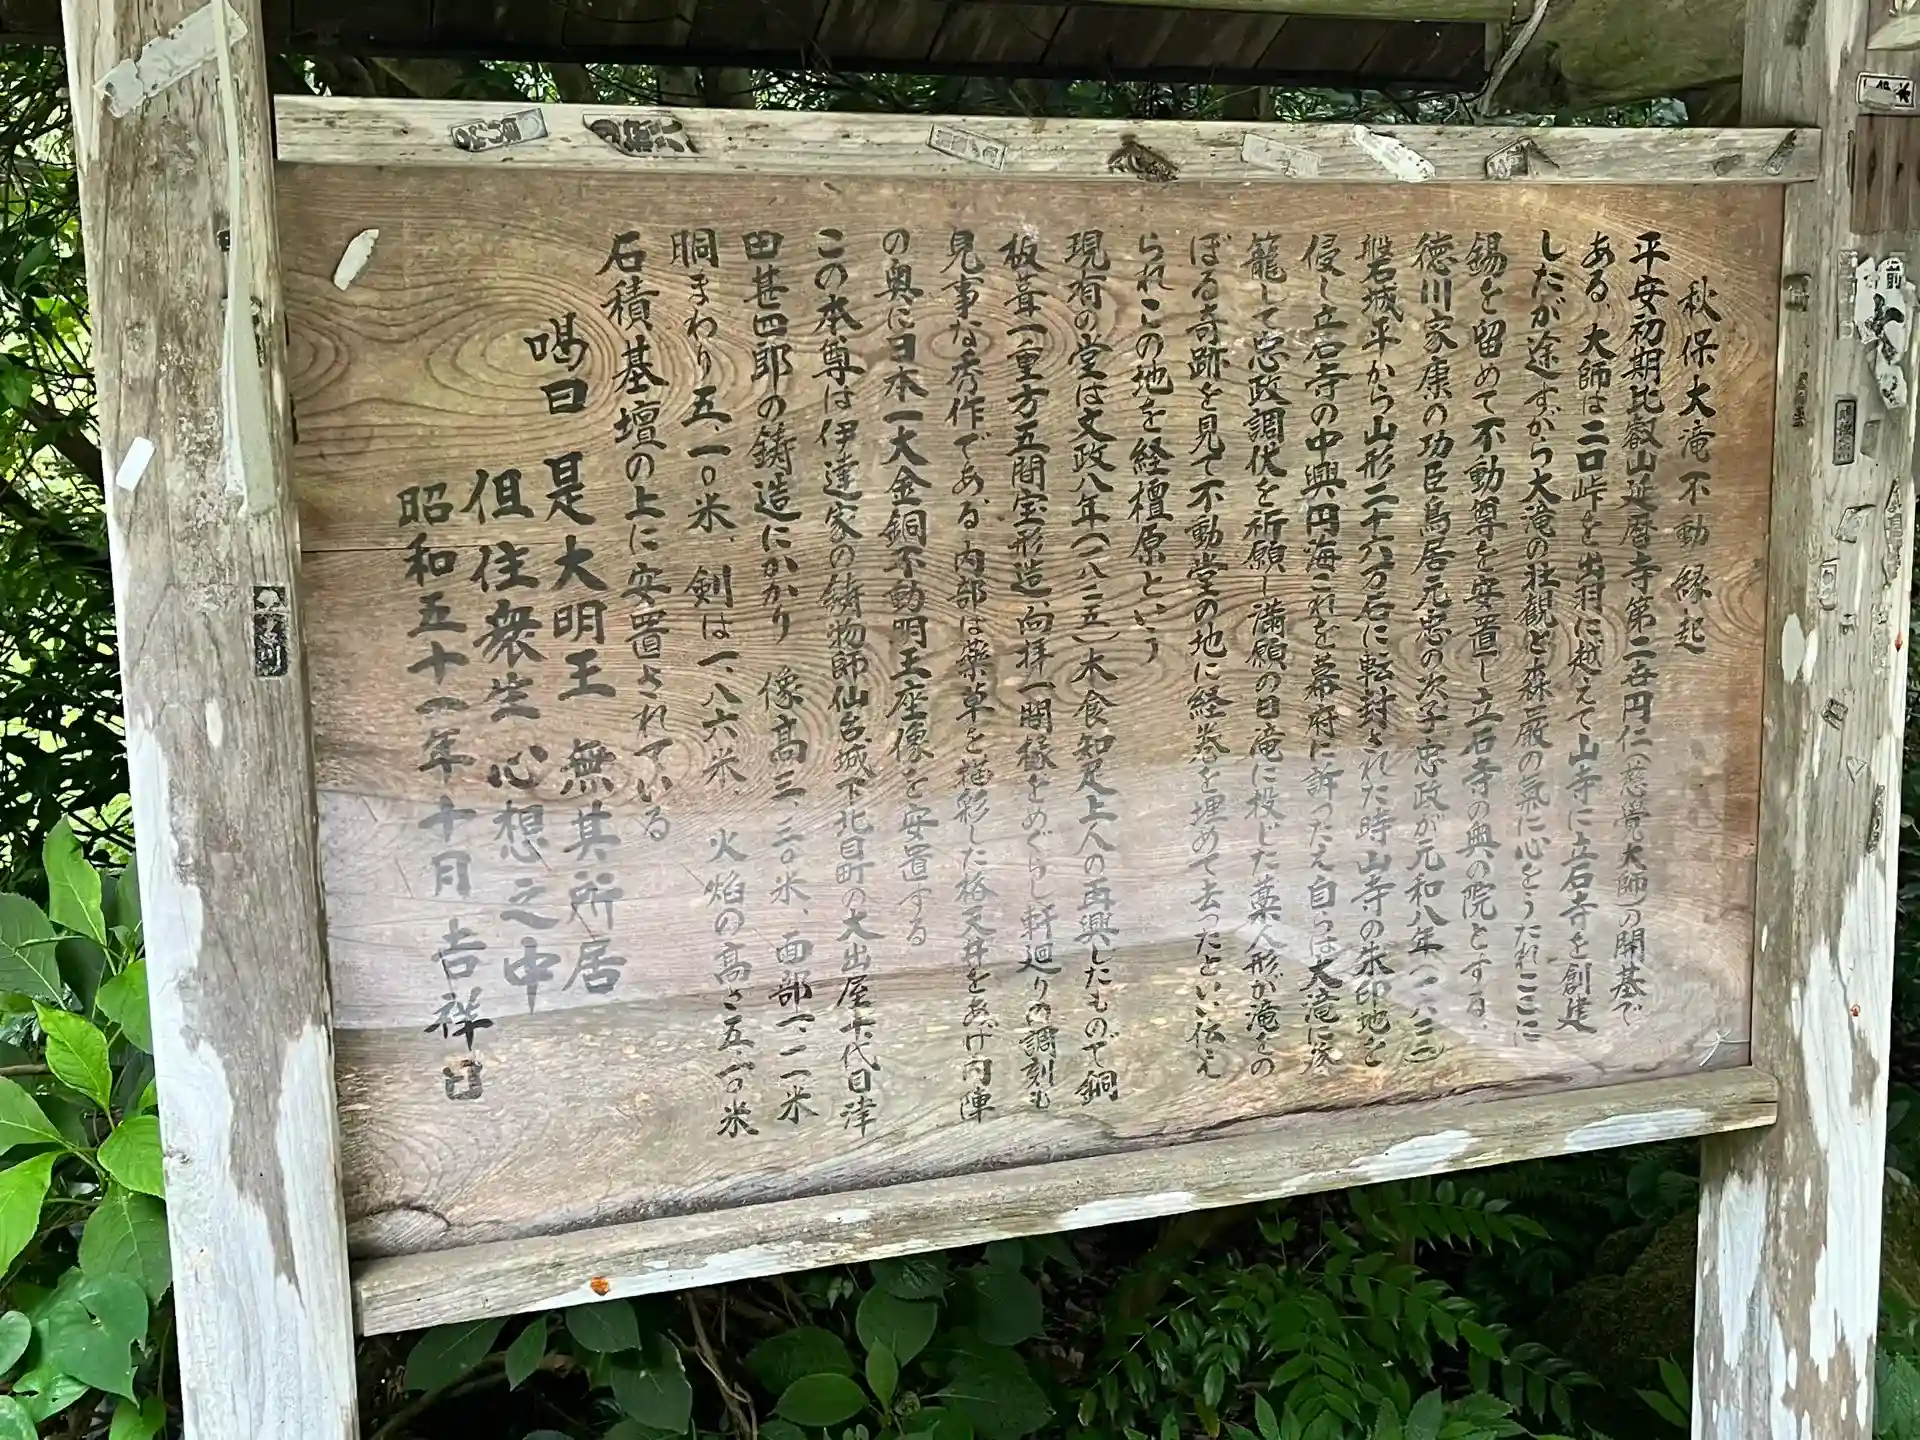 秋保大滝不動縁起
平安初期比叡山延暦寺第二世円仁(慈覺大師)の開基で
ある、大師は二口峠を出羽に越えて山寺に立石寺を創建
したが途すがら大滝の壮観と森厳の氣に心をうたれここに
錫を留めて不動尊を安置し立石寺の奥の院とする、
徳川家康の功臣鳥居元忠の次子忠政が元和八年(一六二二)
磐城平から山形二十六万石に転封された時山寺の朱印地を
侵し立石寺の中興円海これを幕府に訴ったえ自らは大滝に篭
籠して忠政調伏を祈願し満願の日滝に投じた藁人形が滝をの
ぼる奇跡を見て不動堂の地に経巻を埋めて去ったといい伝え
られこの地を経檀原という
現有の堂は文政八年(一八二五)木食知足上人の再興したもので銅
板葺一重方五間宝形造、向拝一間縁をめぐらし軒廻りの調刻も
見事な秀作である、内部は藥草を描彩した格天井をあげ内陣
の奥に日本一大金銅不動明王座像を安置する
この本尊は伊達家の鋳物師仙台城下北目町の大出屋十代目津
田甚四郎の鋳造にかかり 像高三、三〇米、面部一、二一米
胴まわり五、一〇米、剣は一、八六米、火焔の高さ五、一〇米
石積基壇の上に安置されている
喝曰 是大明王 無其所居
但住衆生 心想之中
昭和五十一年十月吉祥日